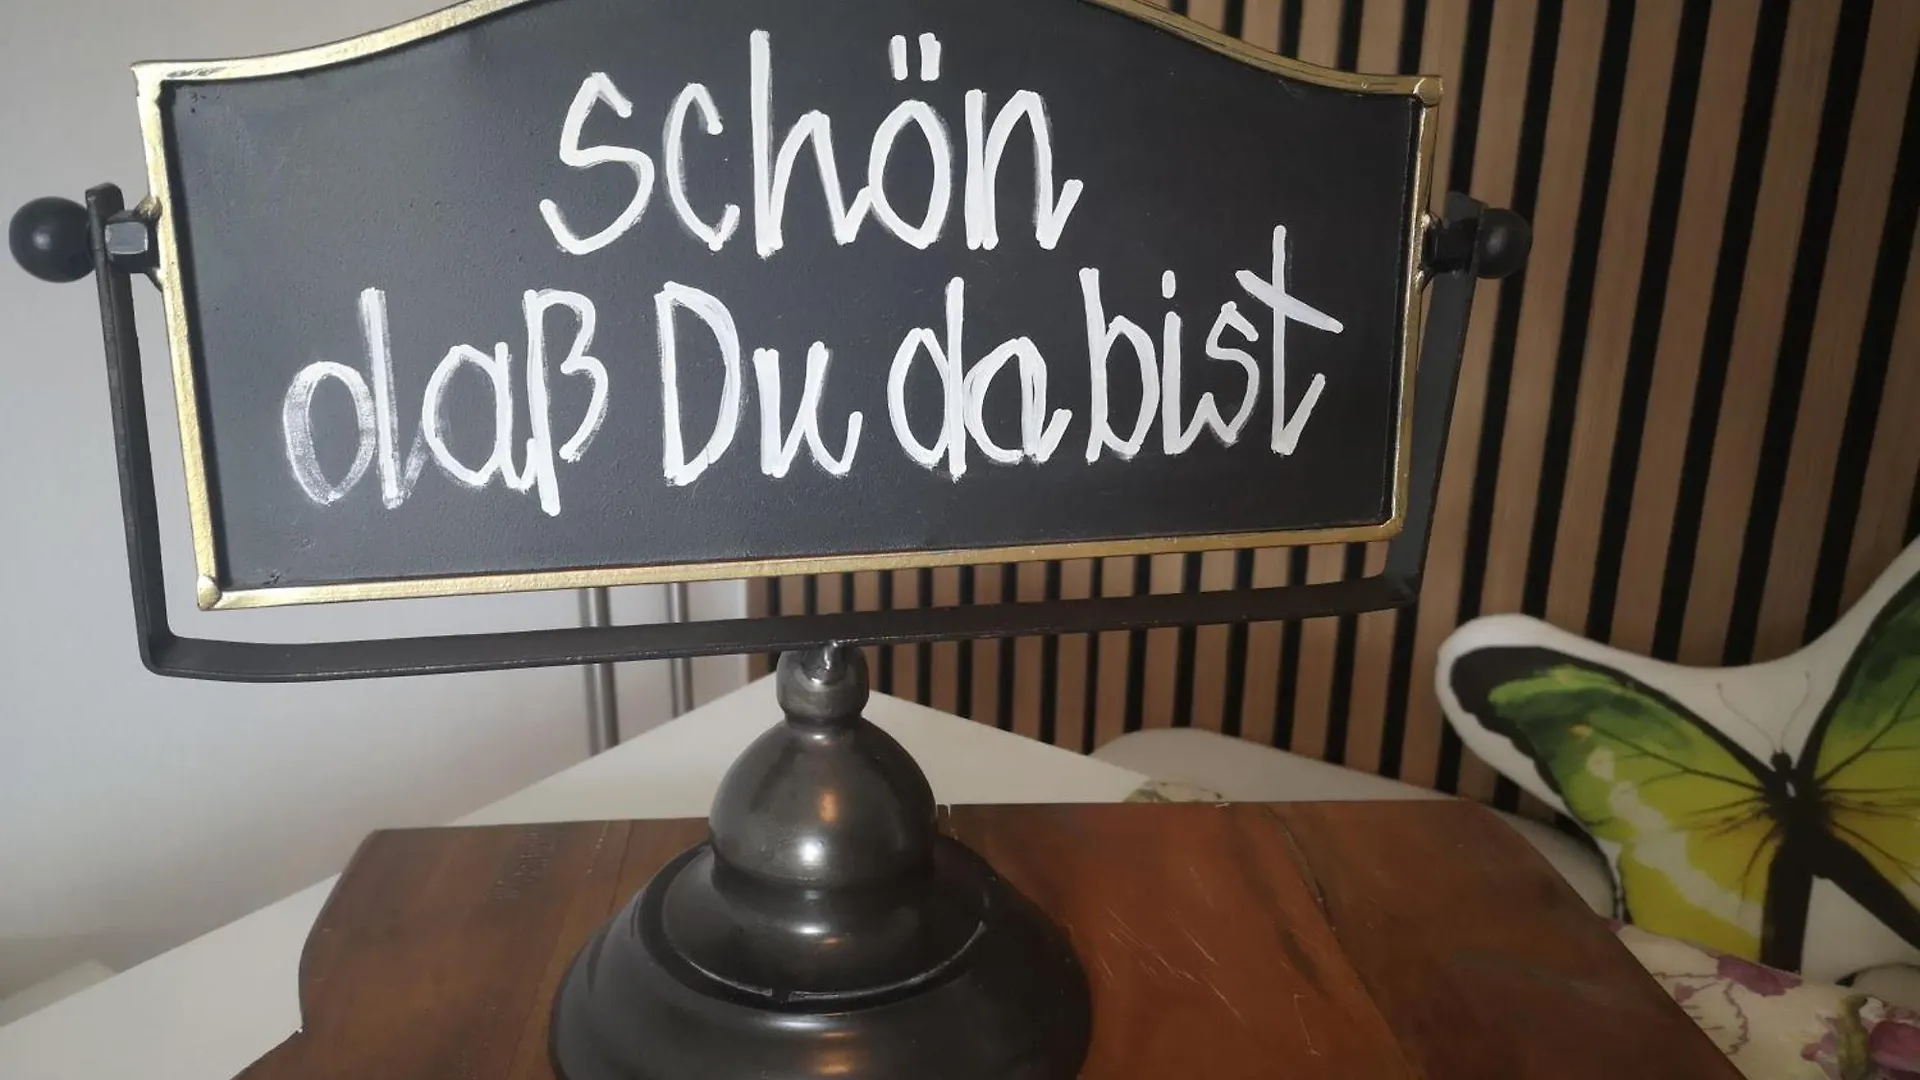 schön
daß Du da bist